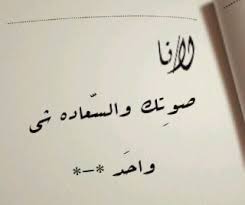 لأنا
صوتِك والسّعاده شی
واحَد *-*